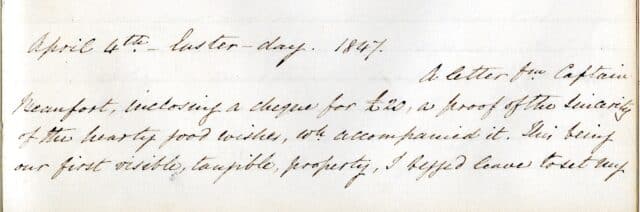 April 4th - Easter - day. 1847.
A letter fm Captain
Beaufort, inclosing a cheque for £20, a proof of the sincerity
of the hearty good wishes, wh. accompanied it. This being
our first visible, tangible, property, I begged leave to set my